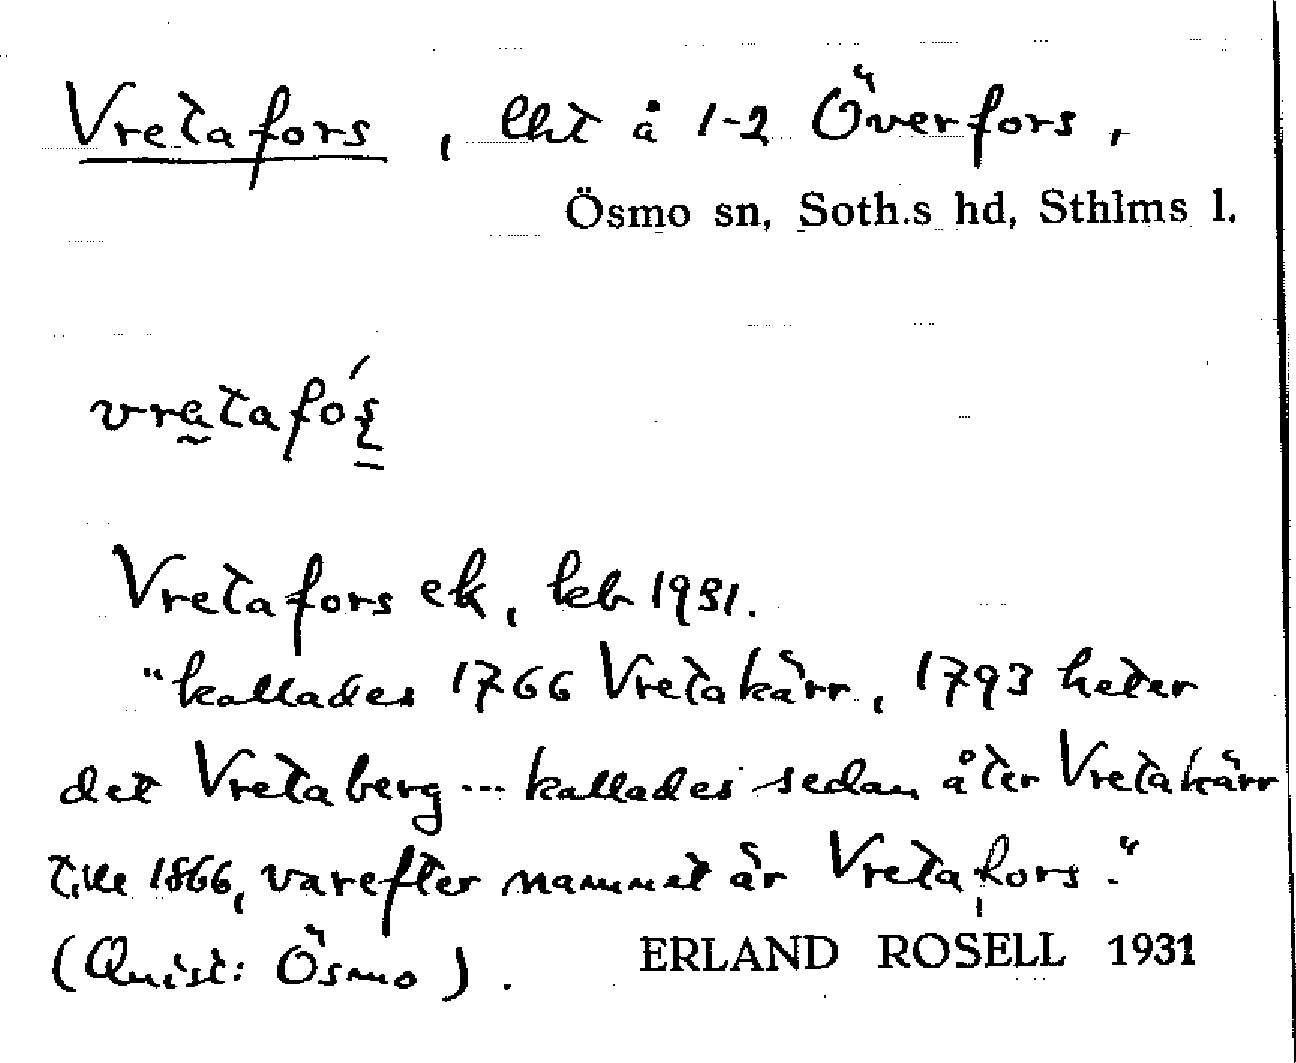 Vretafors, lht å 1-2 Överfors,
Ösmo sn, Soth.s hd, Sthlms l.
vretafó
Vretafors ek, kb 1931.
"kallades 1766 Vretakärr, 1793 heter
det Vretaberg ... kallades sedan åter Vretakärr
till 1866, varefter namnet är Vretafors."
(Quist: Ösmo).
ERLAND ROSELL 1931